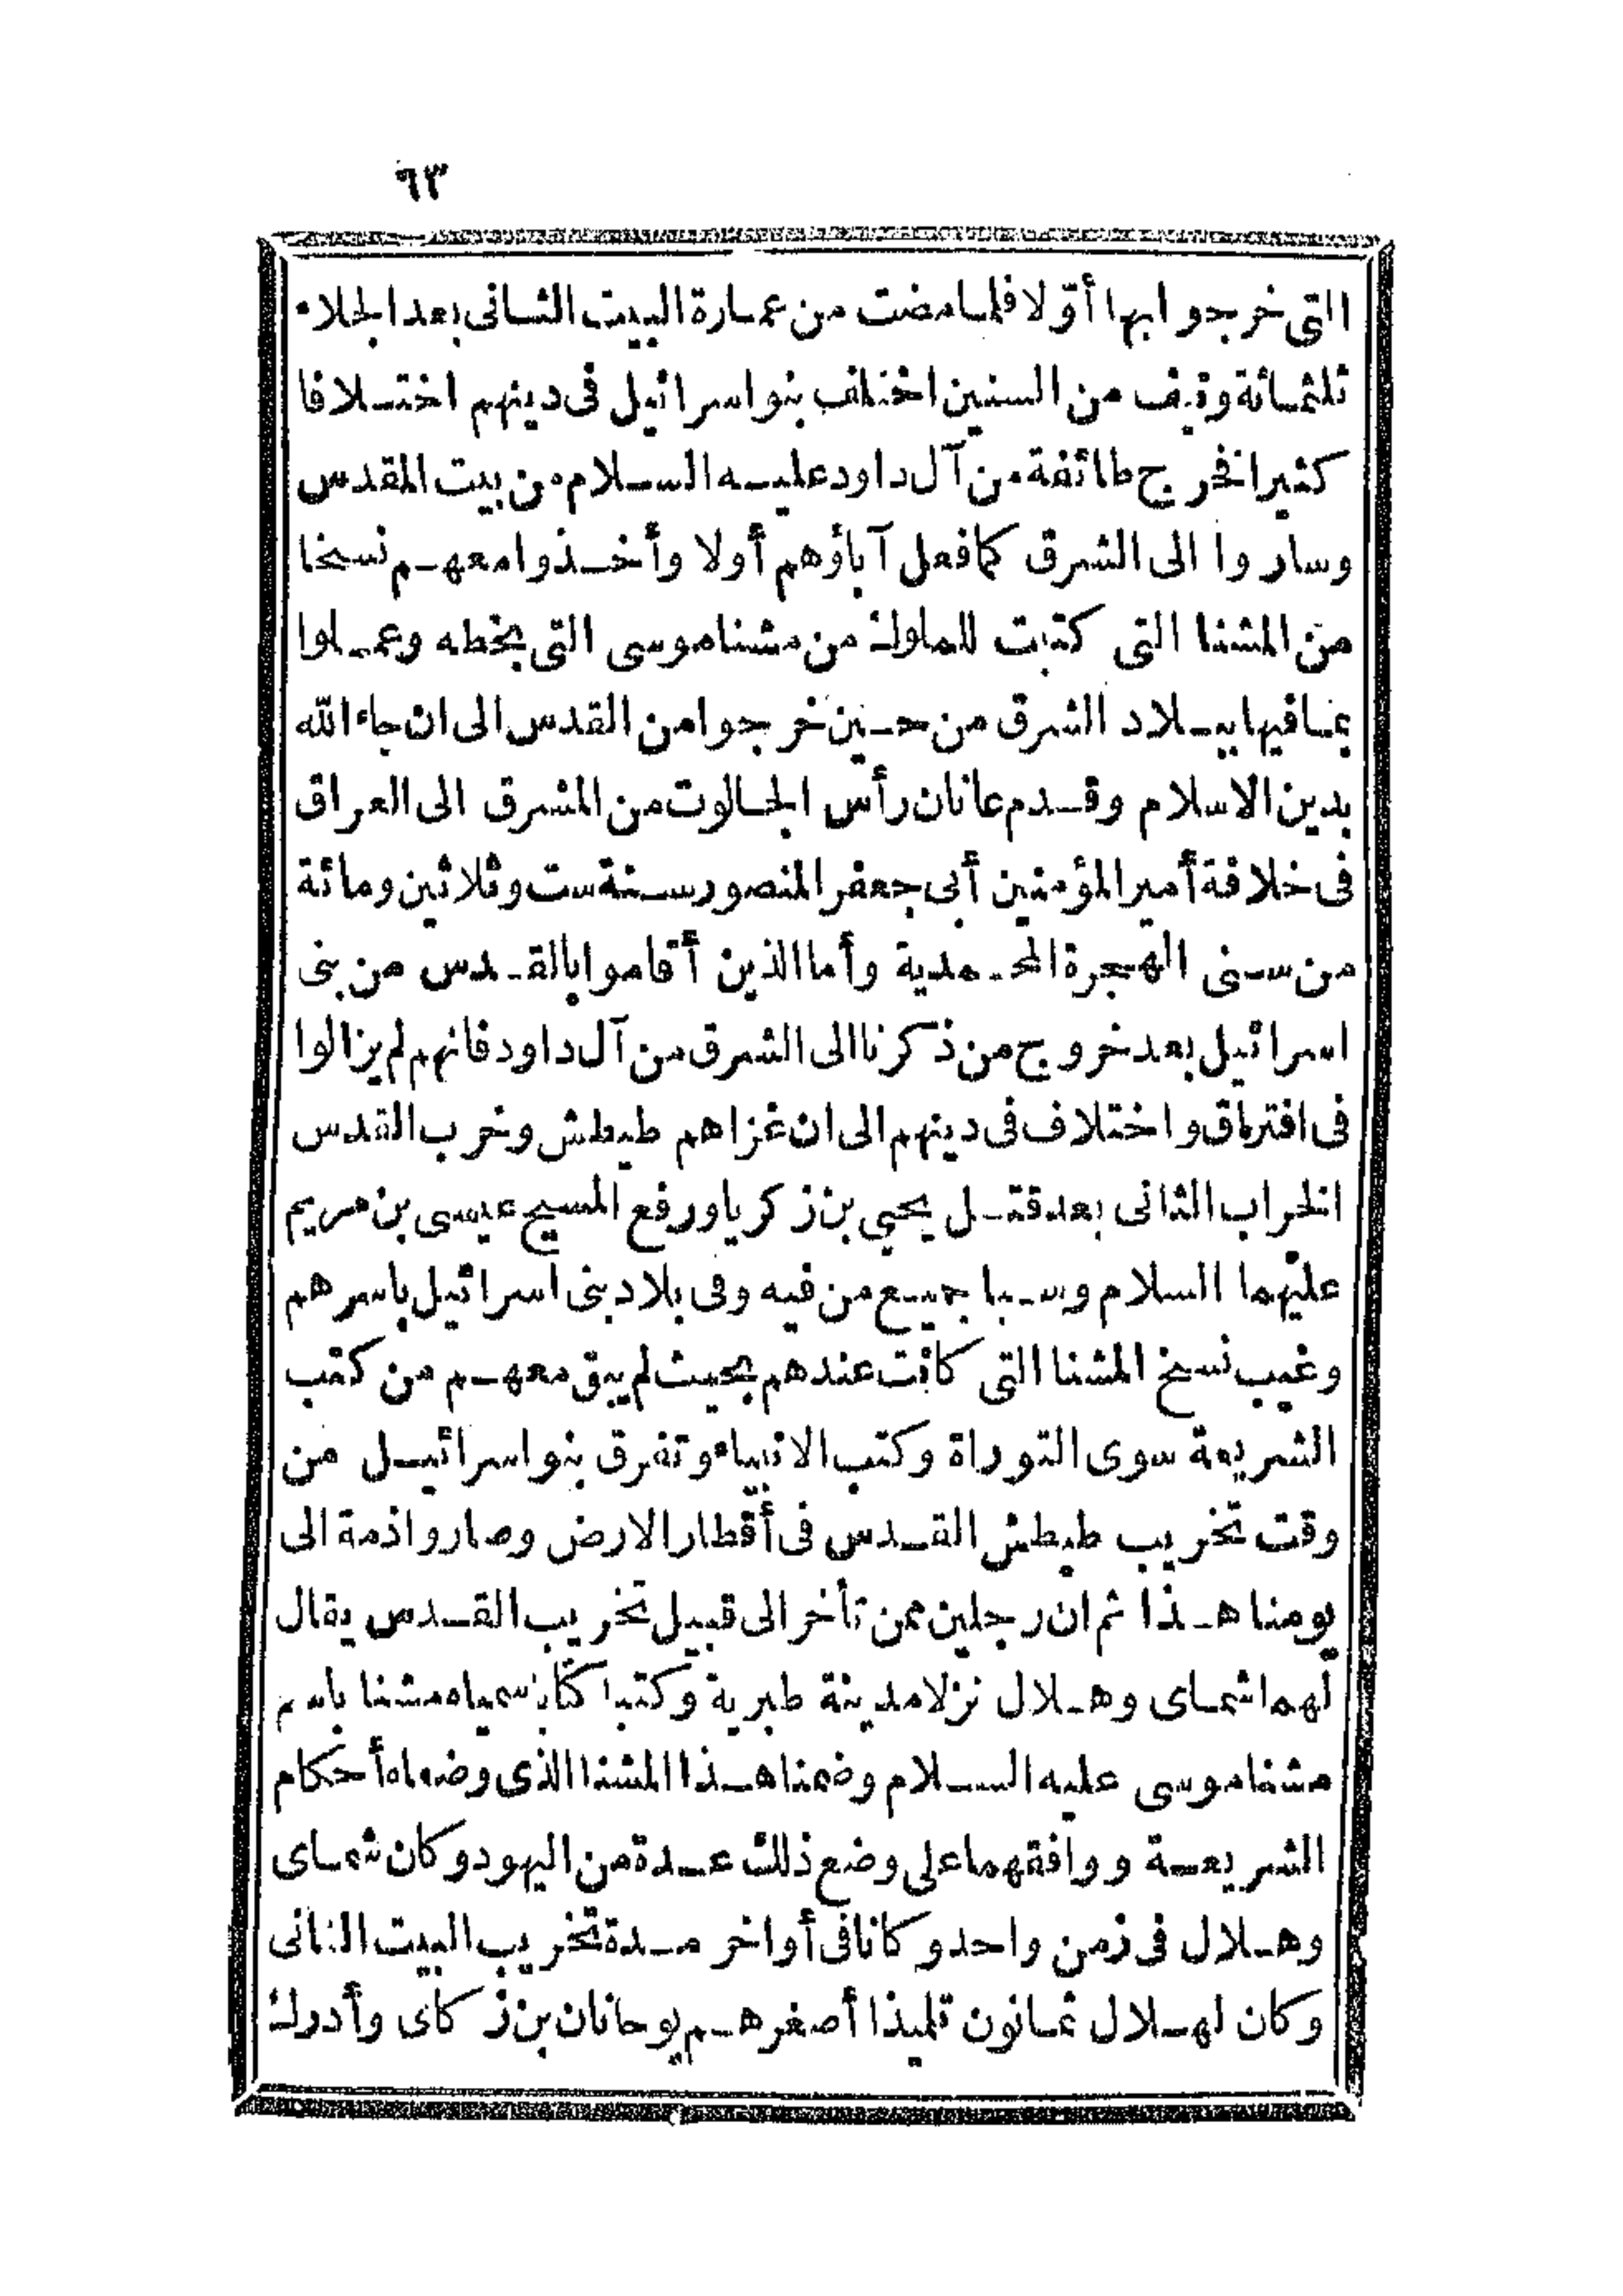 ٦٣
التى خرجوا بها أوّلا فلما مضت من عمارة البيت الثانى بعد الجلاء
ثلثمائة ونيف من السنين اختلف بنو اسرائيل فى دينهم اختلافا
كثيرا فخرج طائفة من آل داود عليه السلام من بيت المقدس
وساروا الى الشرق كما فعل آباؤهم أولا وأخذوا معهم نسخا
من المشنا التى كتبت للملوك من مشنا موسى التى بخطه وعملوا
بما فيها ببلاد الشرق من حين خرجوا من القدس الى ان جاء الله
بدين الاسلام وقدم عانان رأس الجالوت من المشرق الى العراق
فى خلافة أمير المؤمنين أبى جعفر المنصور سنة ست وثلاثين ومائة
من سنى الهجرة المحمدية وأما الذين أقاموا بالقدس من بنى
اسرائيل بعد خروج من ذكرنا الى الشرق من آل داود فانهم لم يزالوا
فى افتراق واختلاف فى دينهم الى ان غزاهم طيطش وخرب القدس
الخراب الثانى بعد قتل يحيى بن زكريا ورفع المسيح عيسى بن مريم
عليهما السلام وسبا جميع من فيه وفى بلاد بنى اسرائيل باسرهم
وغيب نسخ المشنا التى كانت عندهم بحيث لم يبق معهم من كتب
الشريعة سوى التوراة وكتب الانبياء وتفرق بنو اسرائيل من
وقت تخريب طيطش القدس فى أقطار الارض وصاروا ذمة الى
يومنا هذا ثم ان رجلين ممن تأخر الى قبيل تخريب القدس يقال
لهما شماى وهلال نزلا مدينة طبرية وكتبا كتابا سمياه مشنا باسم
مشنا موسى عليه السلام وضمنا هذا المشنا الذى وضعاه أحكام
الشريعة ووافقهما على وضع ذلك عدة من اليهود وكان شماى
وهلال فى زمن واحد وكانا فى أواخر مدة تخريب البيت الثانى
وكان لهلال ثمانون تلميذا أصغرهم يوحانان بن زكاى وأدرك